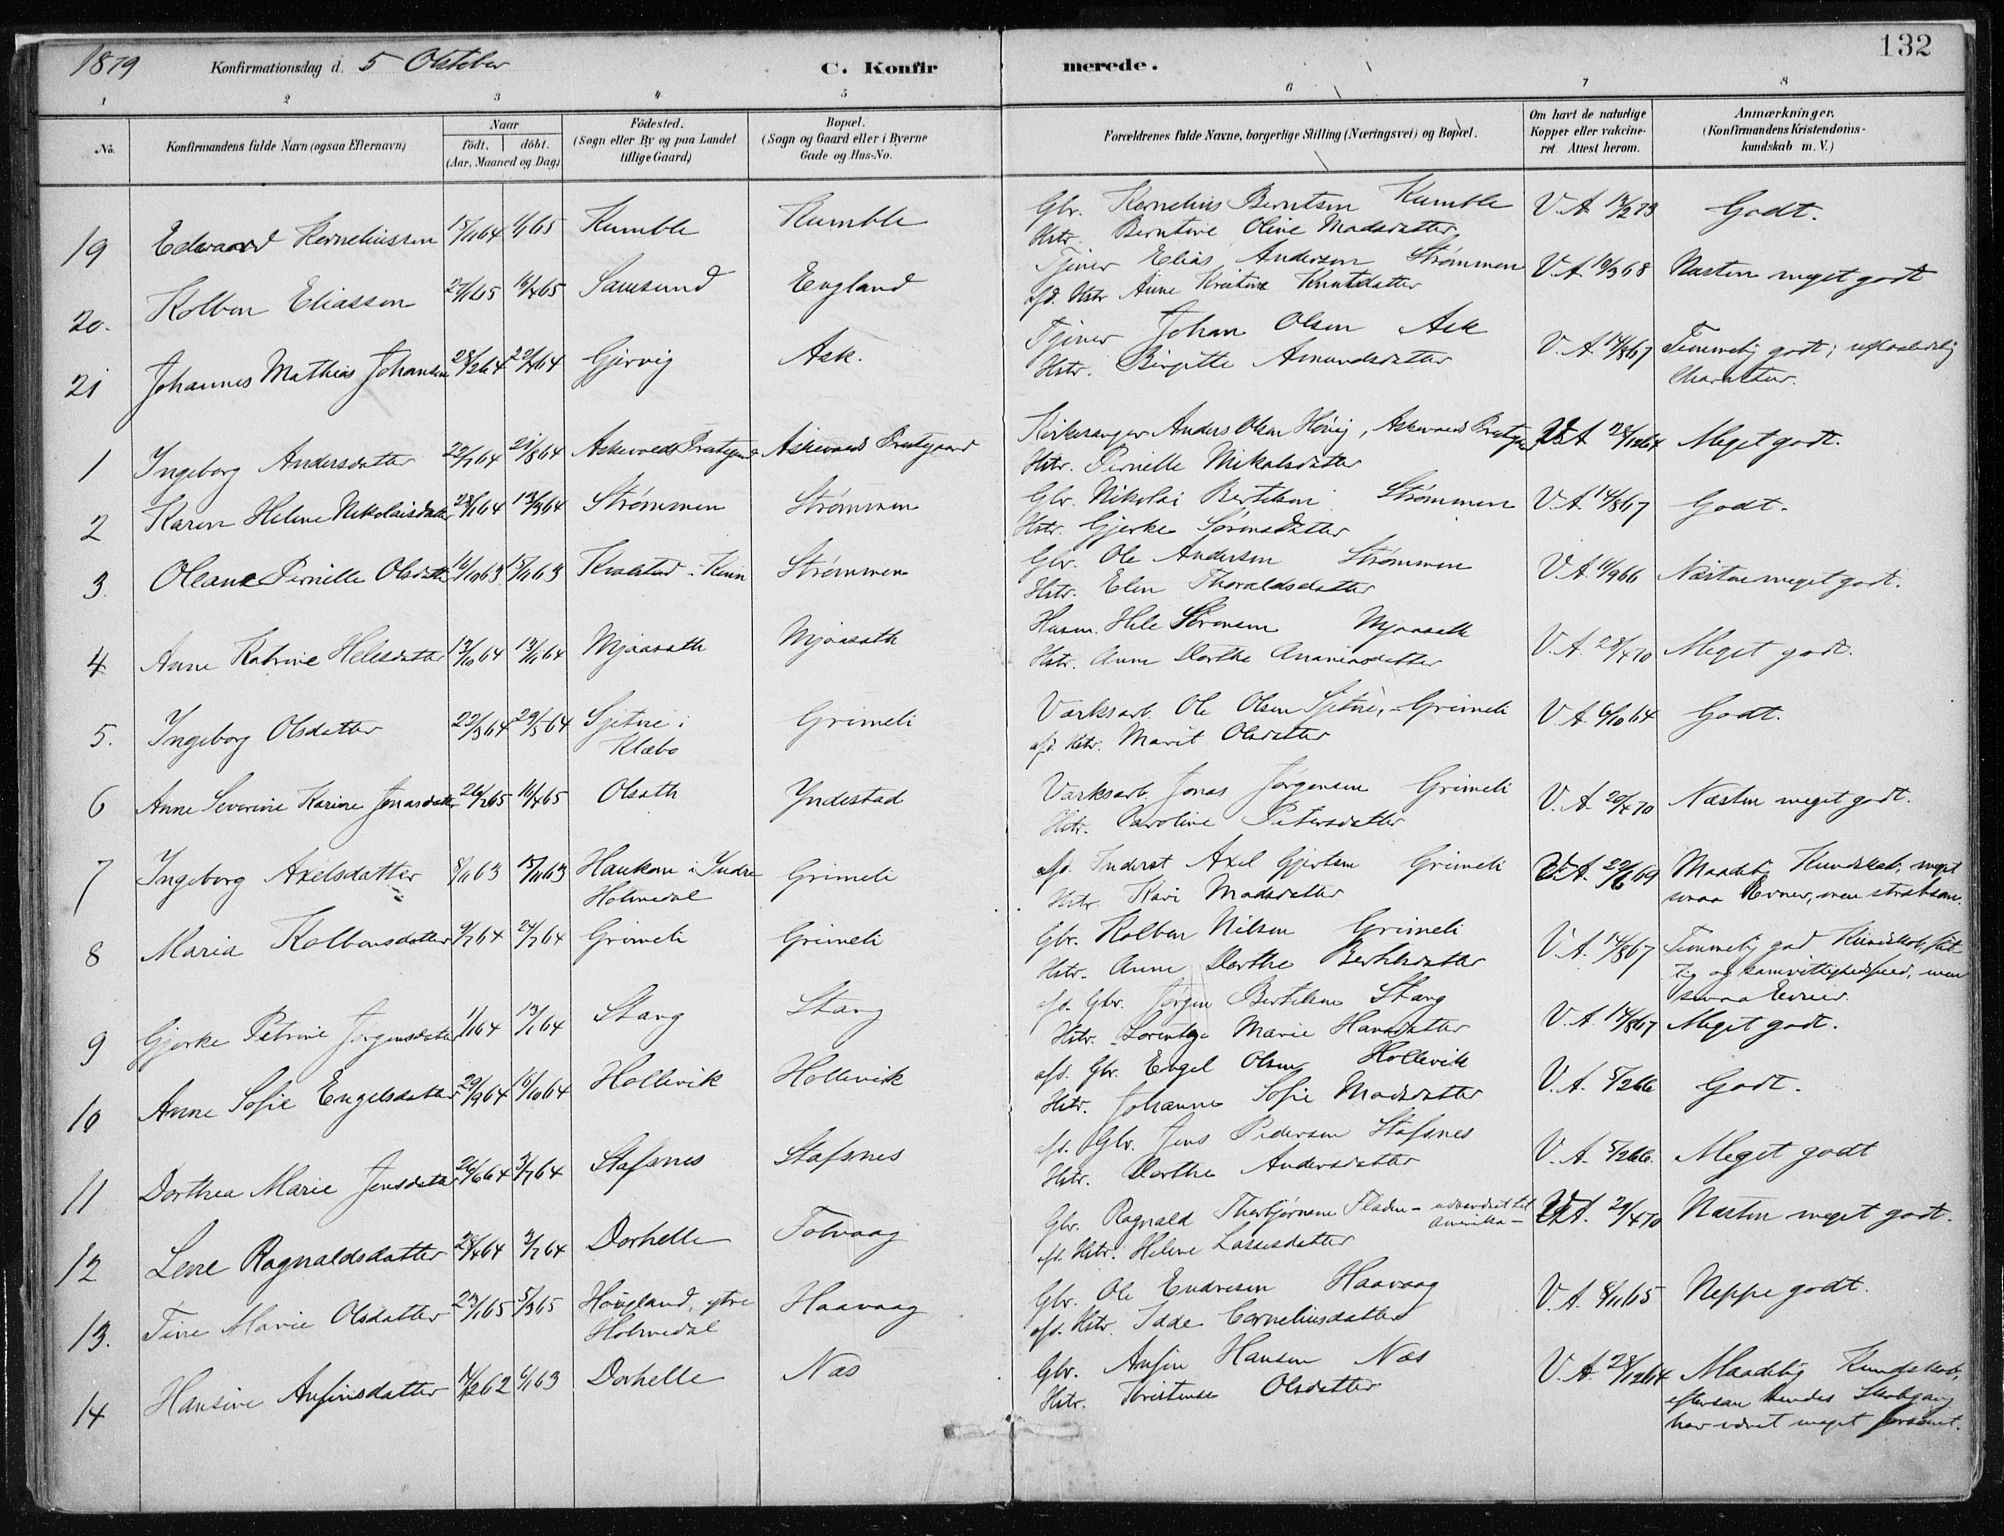 1879 Konfirmationsdag d. 5 Oktober C. Konfirmerede. 132
1 2 3 4 5 6 7 8
No. Konfirmandens fulde Navn (ogsaa Efternavn) Naar födt. döbt. (Aar, Maaned og Dag) Födested. (Sogn eller By og paa Landet tillige Gaard) Bopæl. (Sogn og Gaard eller i Byerne Gade og Hus-No. Forældrenes fulde Navne, borgerlige Stilling (Næringsvei) og Bopæl. Om havt de naturlige Kopper eller vakcineret. Attest herom. Anmærkninger. (Konfirmandens Kristendomskundskab m. V.)
19 Edvard Korneliussen 15/11 64 1/1 65 Kumble Kumble Gbr. Kornelius Berntsen Kumble V.A. 13/2 73 Godt.
Hstr. Berntine Oline Madsdatter
20. Kolben Eliassen Samsund England Tjener Elias Anderson Strømmen V.A. 10/3 68 Næsten meget godt
afd. Hstr Anne Kristine Knutsdatter
21 Johannes Mathias Johansen 28/2 64 Gjervig Ask. Tjener Johan Olsen Ask V.A. 14/8 67 Temmelig godt; upaalidelig
Hstr. Birgitte Amundsdatter Charakter.
1 Ingeborg Andersdatter 22/7 64 21/8 64 Askevold Prestegaard Askevold Prestegaard Kirkesanger Anders Olsen Høvig, Askevold Prestegd V.A 28/12 64 Meget godt.
Hstr. Pernille Nikolsdatter
2 Karen Helene Nikolaisdatter 28/1 64 13/3 64 Strømmen Strømmen Gbr. Nikolai Bertelsen Strømmen V.A. 14/8 67 Godt.
Hstr. Gjerke Sørensdatter
3. Oleane Pernille Olsdatter 16/10 63 15/11 63 Kvalstad - Kinn Strømmen Gbr. Ole Andersen Strømmen V.A. 11/9 66 Næsten meget godt.
Hstr. Elen Thoraldsdatter
4 Anne Katrine Helisdatter 13/10 64 13/11 64 Mjaasath Mjaasath Husm. Hele Sørensen Mjaasath V.A. 28/4 70 Meget godt.
Hstr. Anne Dorthe Ananiasdatter
5. Ingeborg Olsdatter 22/3 64 29/5 64 Sjetne i Grimeli Værksarb. Ole Olsen Sjetne, Grimeli V.A 6/10 64 Godt.
Klæbo afd. Hstr. Marit Olsdatter
6 Anne Severine Karine Jonasdatter 26/2 65 16/4 65 Olsath Yndestad Værksarb. Jonas Jørgensen Grimeli V.A. 20/4 70 Næsten meget godt.
Hstr. Caroline Petersdatter
7 Ingeborg Axelsdatter 8/11 63 15/11 63 Haukom i Indre Grimeli afd. Inderst Axel Gjertsen Grimeli V.A. 22/6 69 Maadelig Kundskab, meget
Holmedal Hstr. Kari Madsdatter smaa Evner, men stræbsom.
8 Maria Kolbensdatter 9/7 64 24/7 64 Grimeli Grimeli Gbr. Kolben Nilsen Grimeli V.A. 14/8 67 Temmelig god Kundskab, flit-
Hstr. Anne Dorthe Bertelsdatter tig og samvittighedsfuld, men
smaa Evner.
9 Gjerke Petrine Jørgensdatter 1/1 64 13/1 64 Stang Stang afd. Gbr. Jørgen Bertelsen Stang V.A. 14/8 67 Meget godt.
Hstr. Lorentze Marie Hansdatter
10 Anne Sofie Engelsdatter 29/9 64 16/10 64 Hollevik Hollevik afd. Gbr. Engel Olsen Hollevik V.A. 5/2 66 Godt.
Hstr. Johanne Sofie Madsdatter
11 Dorthea Marie Jensdatter 26/6 64 3/7 64 Stafsnes Stafsnes afd. Gbr. Jens Pedersen Stafsnes V.A. 5/2 66. Meget godt
Hstr. Dorthe Andersdatter
12 Lene Ragnaldsdatter 24/4 64 3/7 64 Dorhelle Tolvaag Gbr. Ragnald Thorbjørnsen Fladen - udvandret til Amerika - V.A. 29/4 70 Næsten meget godt.
afd. Hstr. Helene Lassesdatter
13. Tine Marie Olsdatter 23/1 65 5/3 65 Høugland, ytre Haavaag Gbr. Ole Endresen Haavaag V.A. 8/11 65 Neppe godt.
Holmedal afd. Hstr. Cornelliusdatter
14 Hansine Anfinsdatter 14/12 62 6/1 63 Dorhelle Næs Gbr. Anfin Hansen Næs V.A. 28/12 64 Maadelig Kundskab,
Hstr. Kristense Olsdatter eftersom hendes Skolegang
har været meget forsømt.